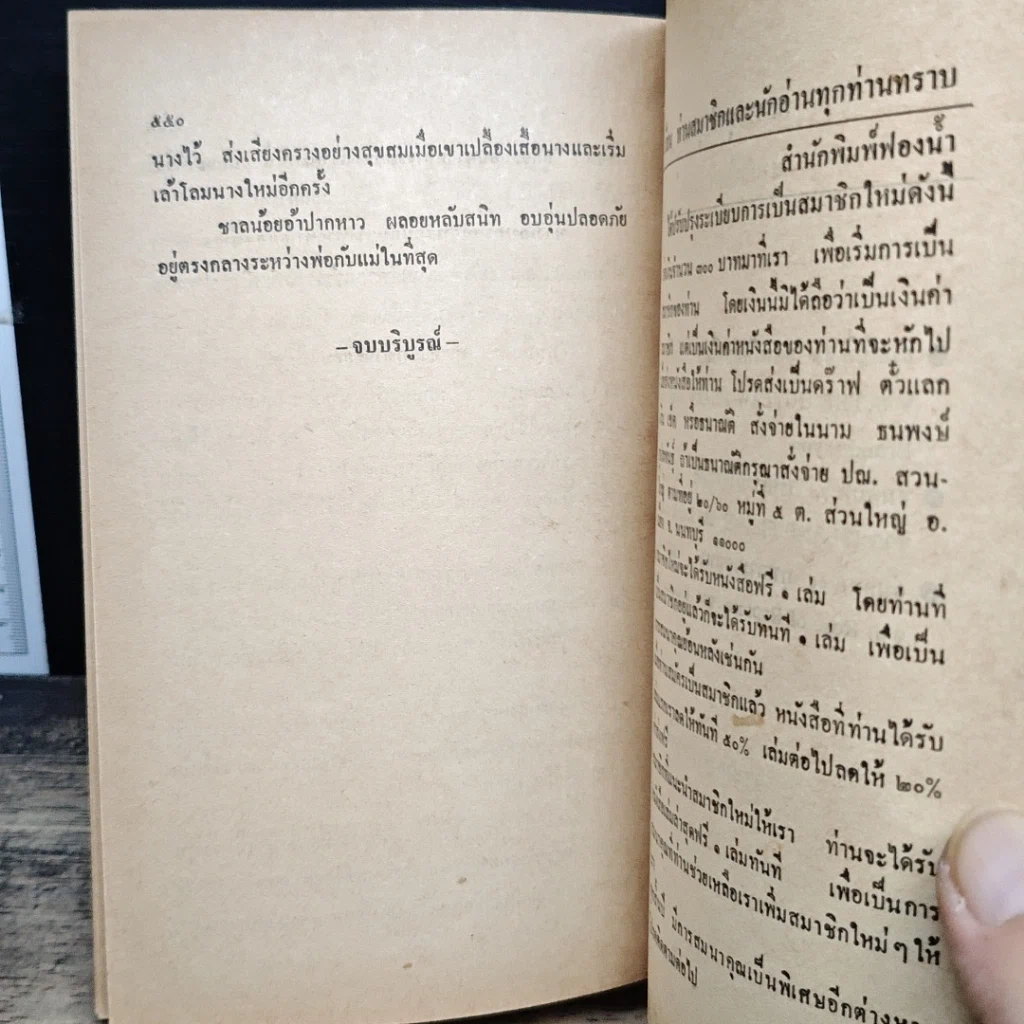 ๕๕๐
นางไว้ ส่งเสียงครางอย่างสุขสมเมื่อเขาเปลื้องเสื้อนางและเริ่ม
เล้าโลมนางใหม่อีกครั้ง
ชาลน้อยอ้าปากหาว ผลอยหลับสนิท อบอุ่นปลอดภัย
อยู่ตรงกลางระหว่างพ่อกับแม่ในที่สุด
– จบบริบูรณ์ –
ท่านสมาชิกและนักอ่านทุกท่านทราบ
สำนักพิมพ์ฟองน้ำ
ปรับปรุงระเบียบการเป็นสมาชิกใหม่ดังนี้
จำนวน ๓๐๐ บาทมาที่เรา เพื่อเริ่มการเป็น
ของท่าน โดยเงินนี้มิได้ถือว่าเป็นเงินค่า
แต่เป็นเงินค่าหนังสือของท่านที่จะหักไป
หนังสือให้ท่าน โปรดส่งเป็นดร๊าฟ ตั๋วแลก
เช็ค หรือธนาณัติ สั่งจ่ายในนาม ธนพงษ์
ถ้าเป็นธนาณัติกรุณาสั่งจ่าย ปณ. สวน-
ตามที่อยู่ ๒๐/๖๐ หมู่ที่ ๕ ต. ส่วนใหญ่ อ.
จ. นนทบุรี ๑๑๐๐๐
ใหม่จะได้รับหนังสือฟรี ๑ เล่ม โดยท่านที่
สมาชิกอยู่แล้วก็จะได้รับทันที ๑ เล่ม เพื่อเป็น
ย้อนหลังเช่นกัน
สมัครเป็นสมาชิกแล้ว หนังสือที่ท่านได้รับ
ลดให้ทันที ๕๐% เล่มต่อไปลดให้ ๒๐%
แนะนำสมาชิกใหม่ให้เรา ท่านจะได้รับ
ล่าสุดฟรี ๑ เล่มทันที เพื่อเป็นการ
ที่ท่านช่วยเหลือเราเพิ่มสมาชิกใหม่ ๆ ให้
มีการสมนาคุณเป็นพิเศษอีกต่างหาก
ติดตามต่อไป